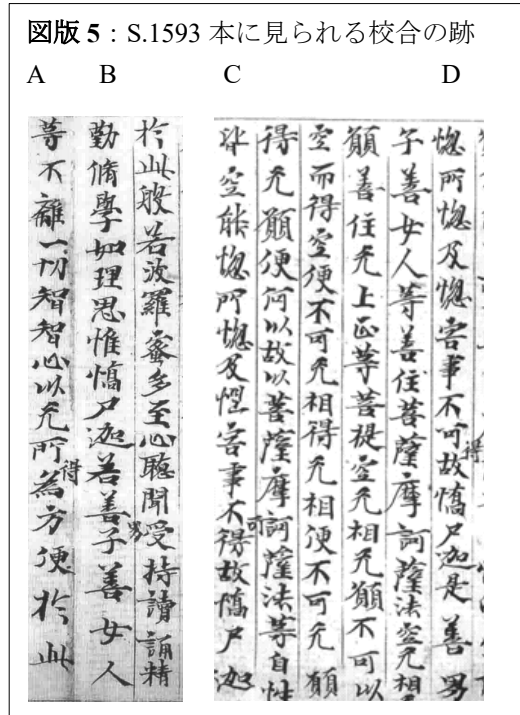 図版5：S.1593本に見られる校合の跡
A B C D
於此般若波羅蜜多至心聽聞受持讀誦精
勤脩學如理思惟憍尸迦若善男子善女人
等不離一切智智心以无所得為方便於此
惱所惱及惱害事不可得故憍尸迦是善男
子善女人等善住菩薩摩訶薩法空无相
願善住无上正等菩提空无相无願不可以
空而得空便不可无相得无相便不可无願
得无願便何以故以菩薩摩訶薩法等自性
皆空能惱所惱及惱害事不可得故憍尸迦